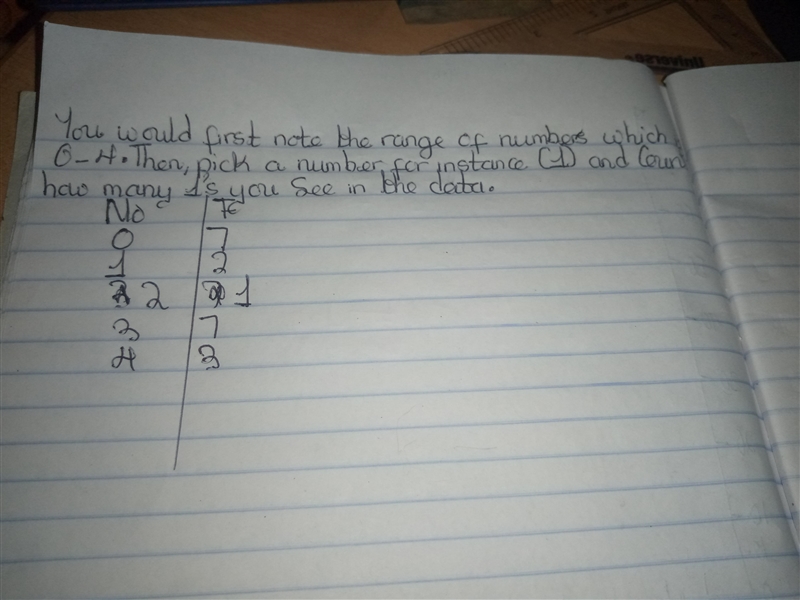 You would first note the range of numbers which
0-4. Then, pick a number for instance (1) and Coun
how many 1s you See in the data.
No F
0 7
1 2
2 1
3 7
4 3
Universal